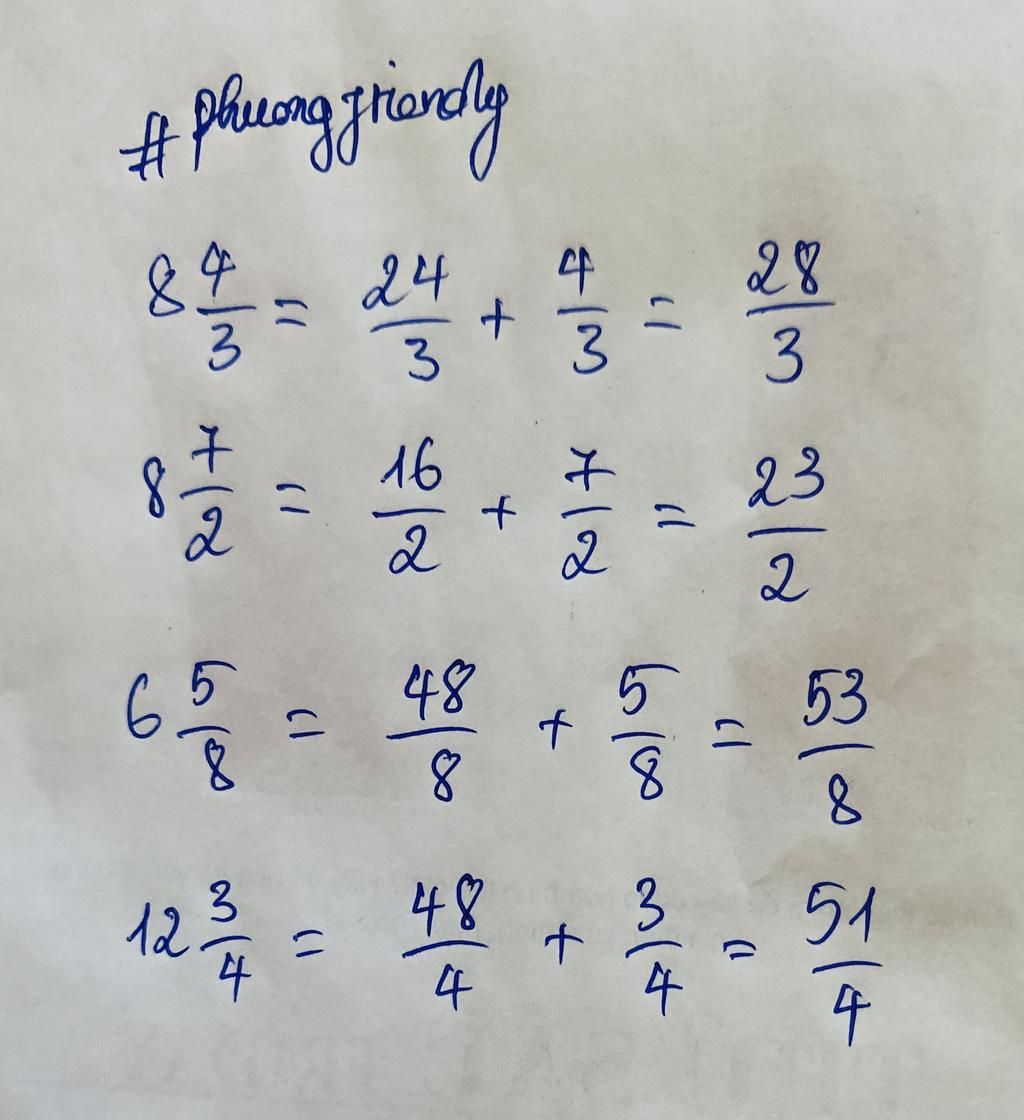 #phuongfriendly
8 4/3 = 24/3 + 4/3 = 28/3
8 7/2 = 16/2 + 7/2 = 23/2
6 5/8 = 48/8 + 5/8 = 53/8
12 3/4 = 48/4 + 3/4 = 51/4